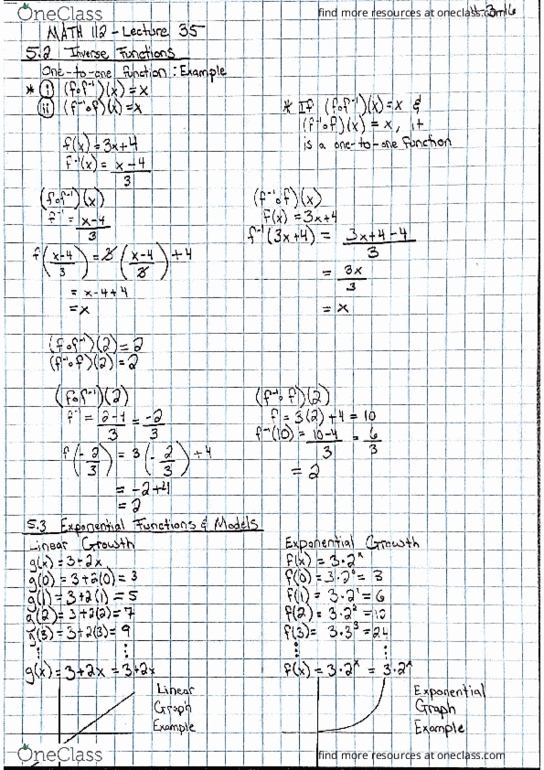 OneClass
find more resources at oneclass.com
MATH 112 - Lecture 35
5.2 Inverse Functions
One-to-one function: Example
* (i) (f∘f⁻¹)(x) = x
(ii) (f⁻¹∘f)(x) = x
* If (f∘f⁻¹)(x) = x &
(f⁻¹∘f)(x) = x, it
is a one-to-one function
f(x) = 3x+4
f⁻¹(x) = x-4/3
(f∘f⁻¹)(x)
f⁻¹ = x-4/3
f(x-4/3) = 3(x-4/3) + 4
= x-4+4
= x
(f⁻¹∘f)(x)
f(x) = 3x+4
f⁻¹(3x+4) = 3x+4-4/3
= 3x/3
= x
(f∘f⁻¹)(2) = 2
(f⁻¹∘f)(2) = 2
(f∘f⁻¹)(2)
f⁻¹ = 2-4/3 = -2/3
f(-2/3) = 3(-2/3) + 4
= -2+4
= 2
(f⁻¹∘f)(2)
f = 3(2)+4 = 10
f⁻¹(10) = 10-4/3 = 6/3
= 2
5.3 Exponential Functions & Models
Linear Growth
g(x) = 3+2x
g(0) = 3+2(0) = 3
g(1) = 3+2(1) = 5
g(2) = 3+2(2) = 7
g(3) = 3+2(3) = 9
⋮ ⋮
g(x) = 3+2x = 3+2x
Linear
Graph
Example
Exponential Growth
f(x) = 3·2ˣ
f(0) = 3·2⁰ = 3
f(1) = 3·2¹ = 6
f(2) = 3·2² = 12
f(3) = 3·3³ = 24
⋮ ⋮
f(x) = 3·2ˣ = 3·2ˣ
Exponential
Graph
Example
OneClass
find more resources at oneclass.com